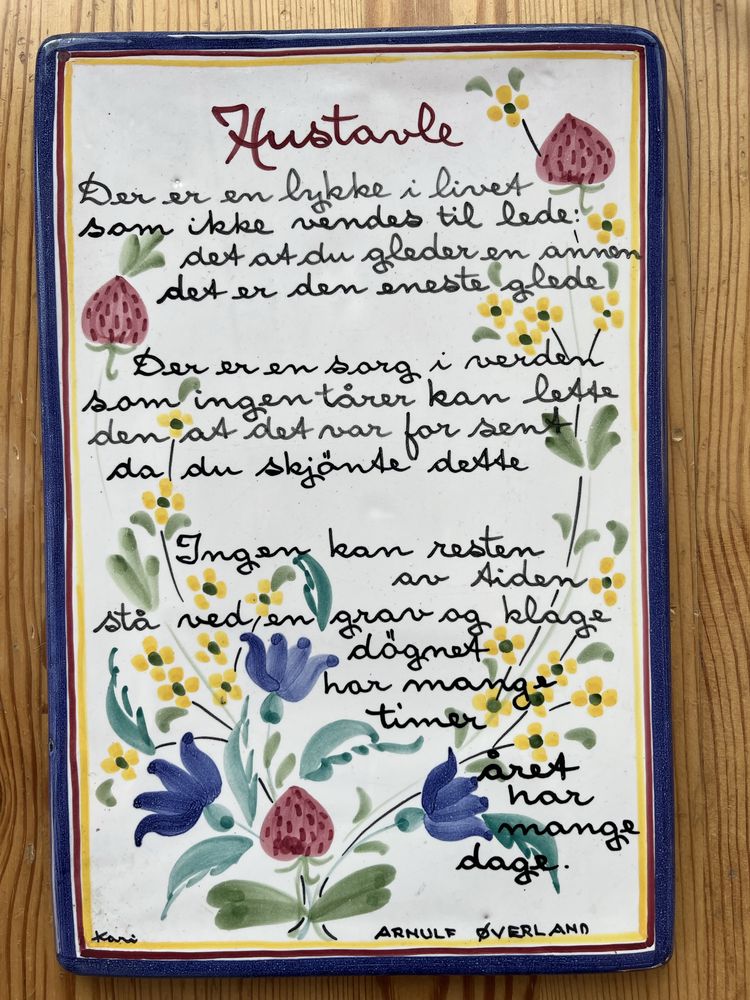 Hustavle
Der er en lykke i livet
som ikke vendes til lede:
det at du gleder en annen
det er den eneste glede
Der er en sorg i verden
som ingen tårer kan lette
den at det var for sent
da du skjönte dette
Ingen kan resten
av tiden
stå ved en grav og klage
dögnet
har mange
timer
året
har
mange
dage.
Kari
ARNULF ØVERLAND